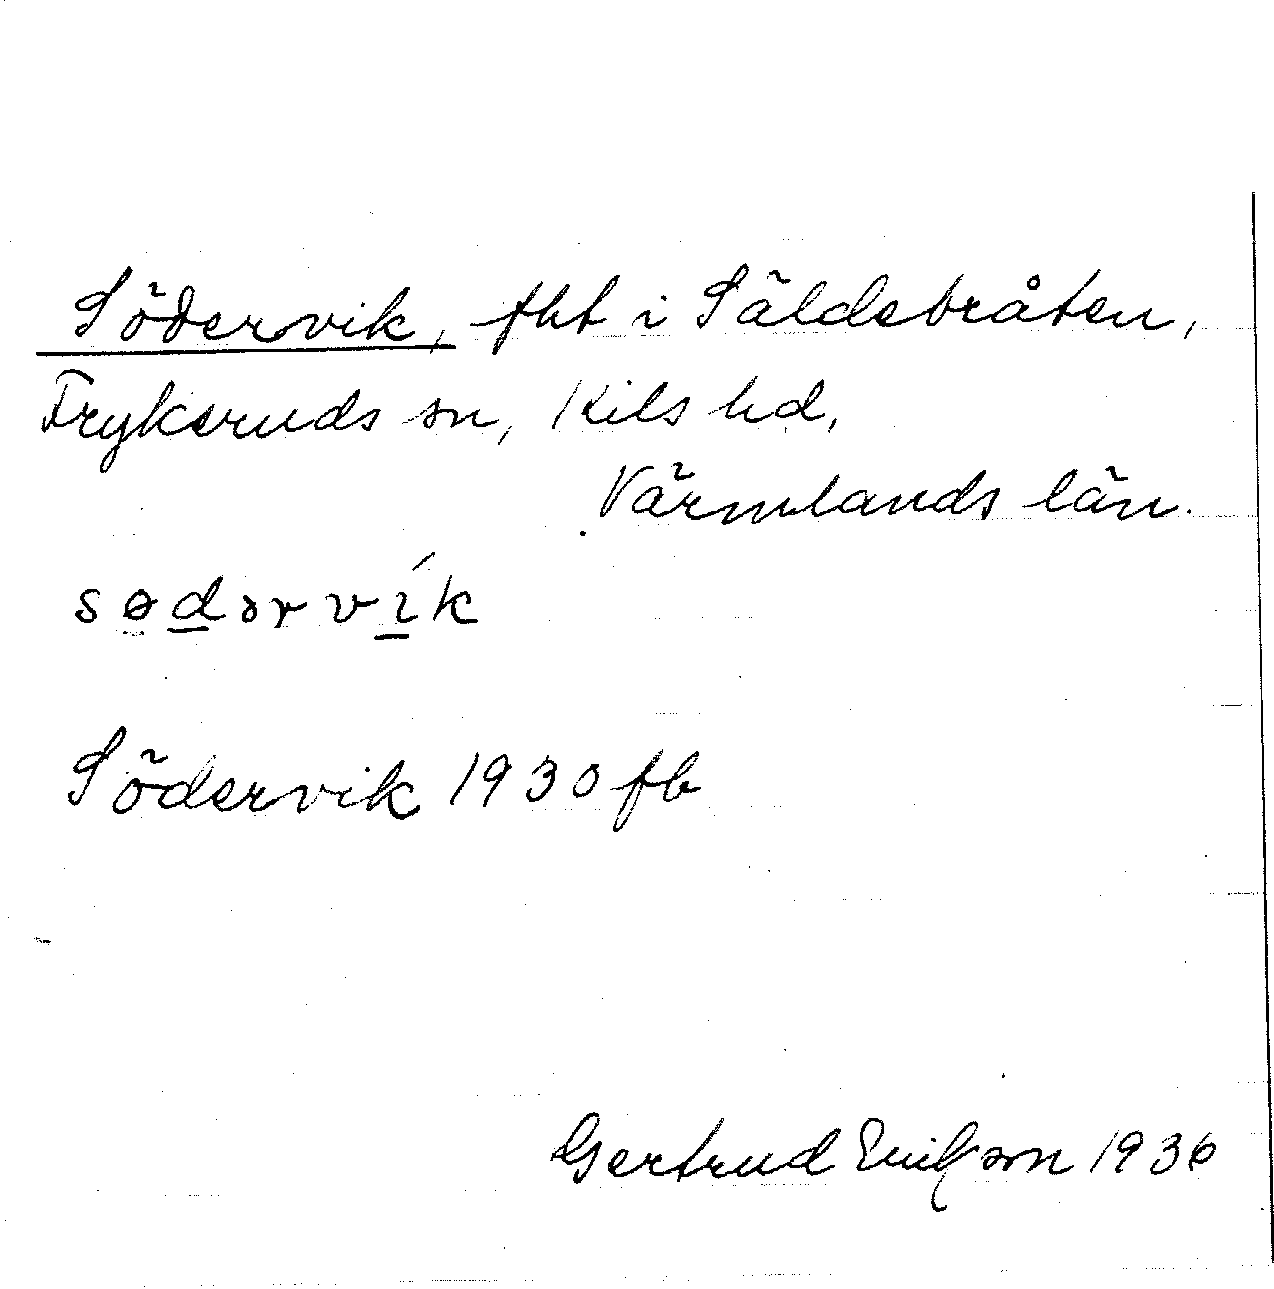 Södervik, fht i Säldebråten,
Frykeruds sn, Kils hd,
Värmlands län.
sødərvík
Södervik 1930 fb
Gertrud Erikson 1936